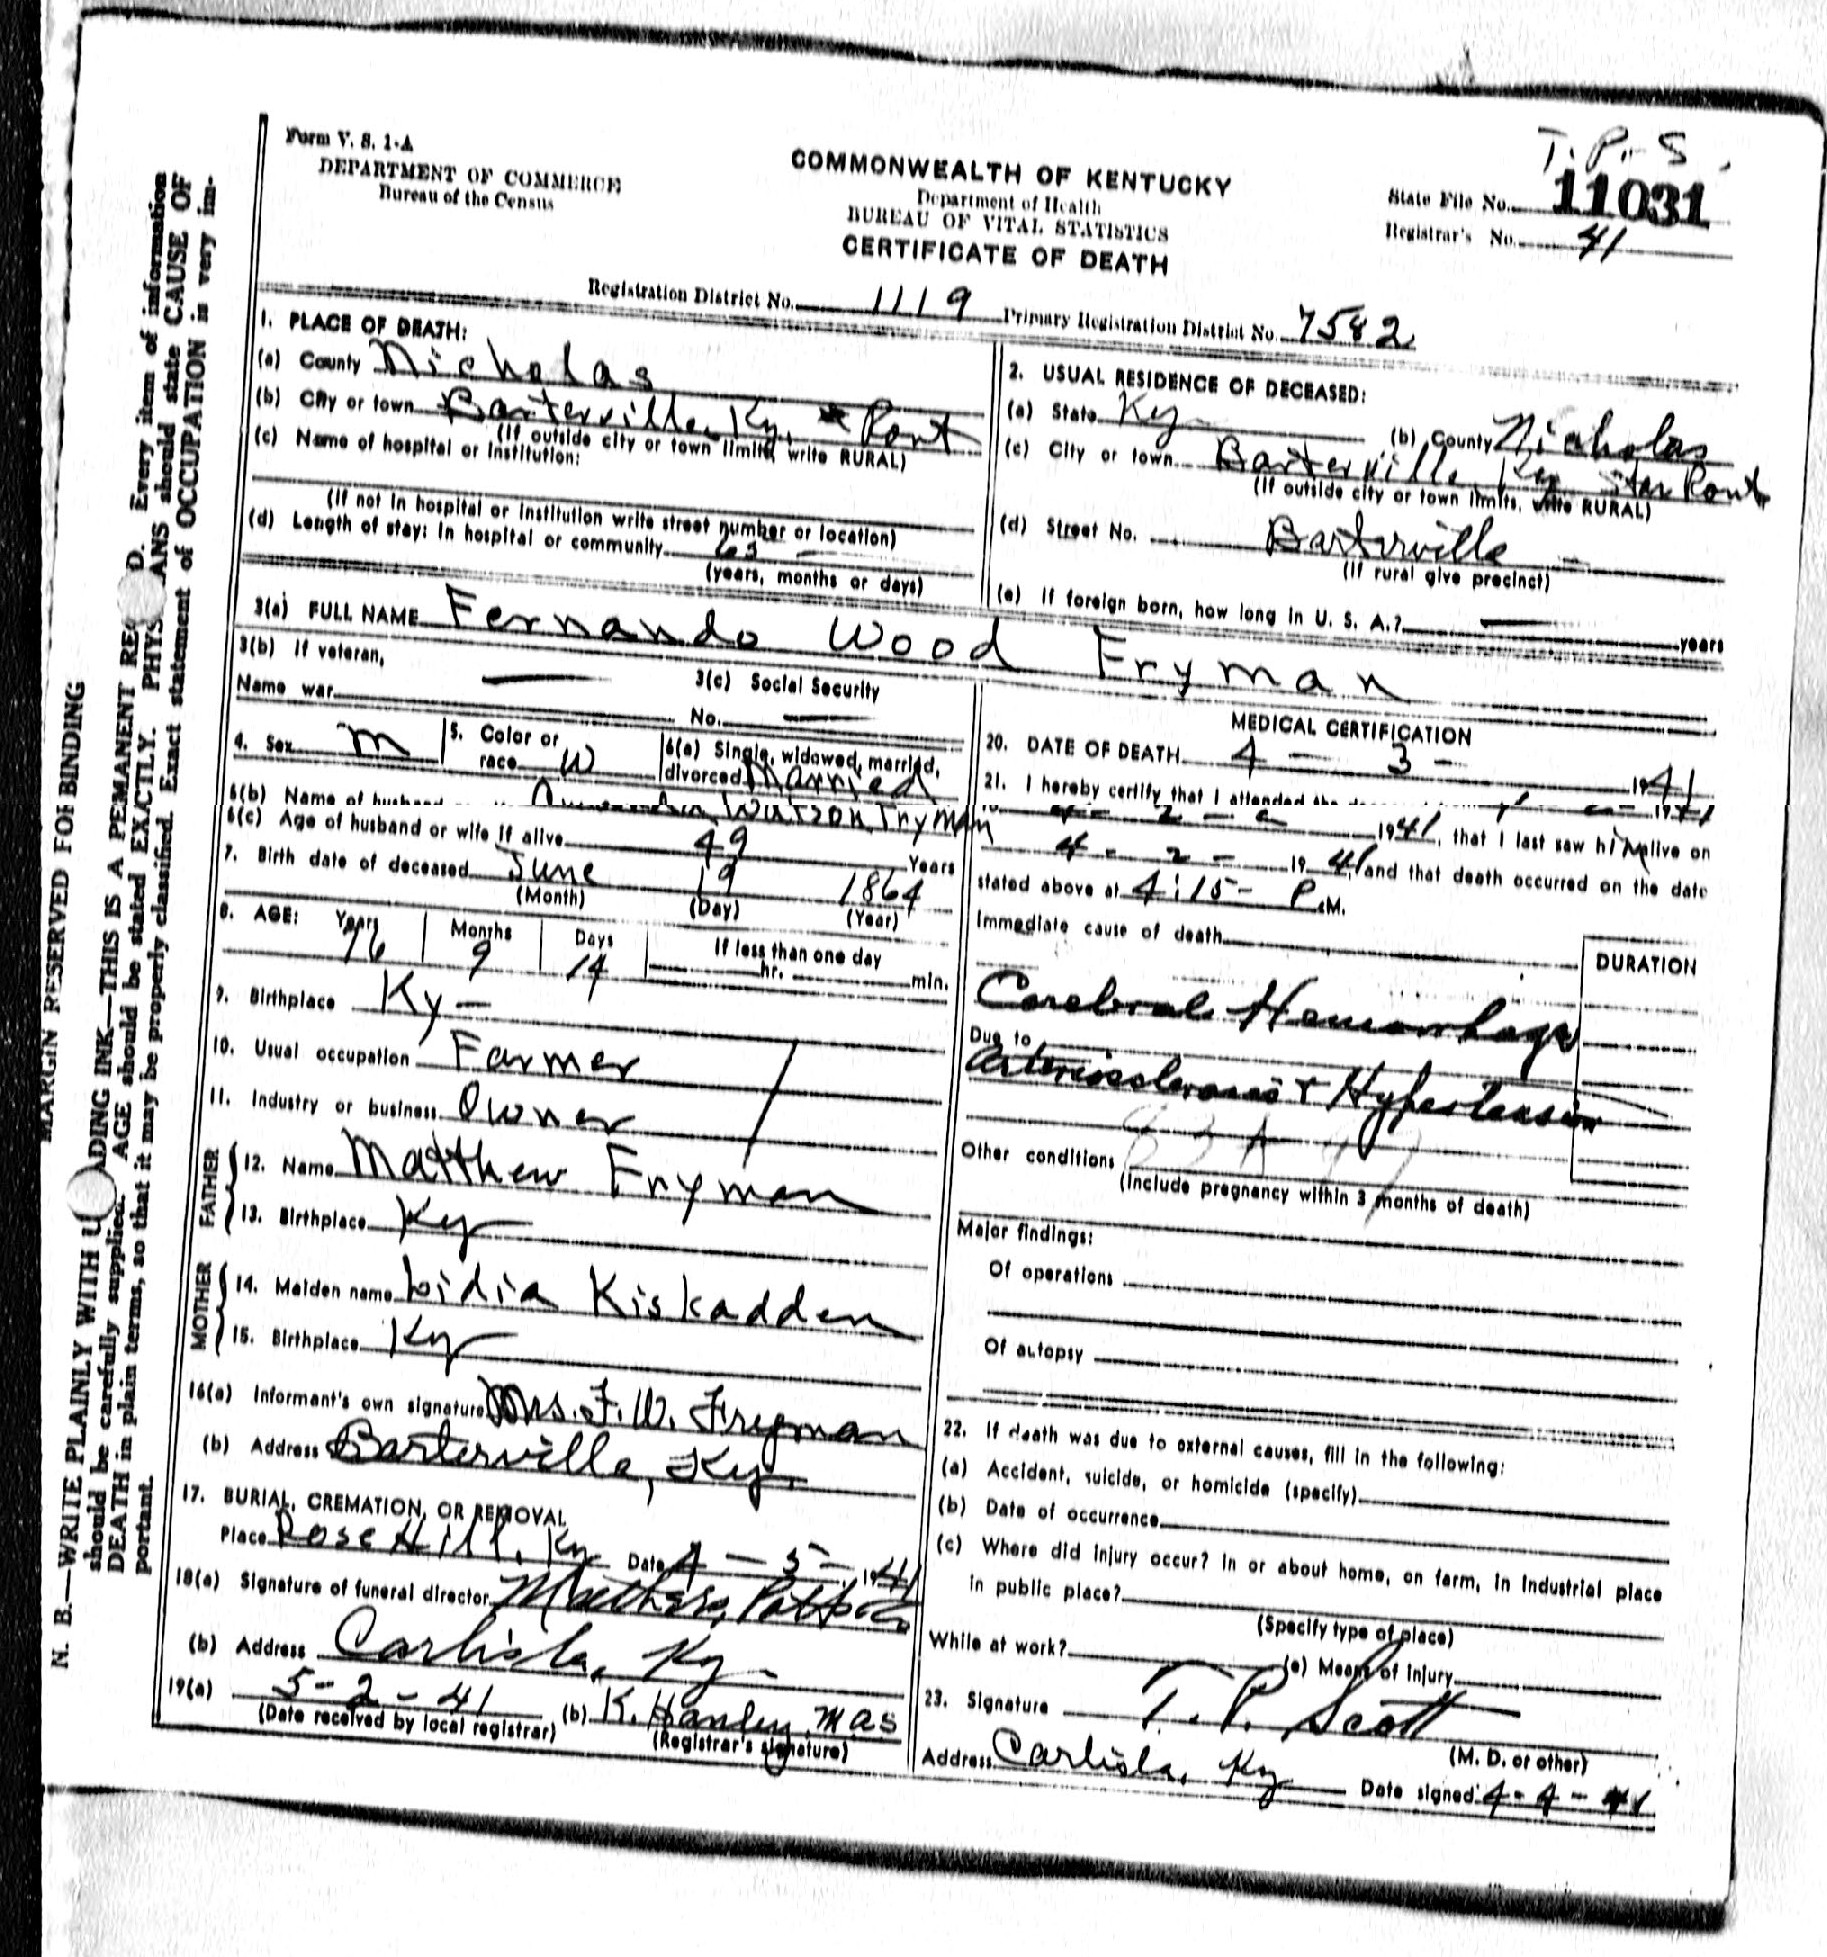 T. P. S.
Form V. S. 1-A
DEPARTMENT OF COMMERCE
Bureau of the Census
COMMONWEALTH OF KENTUCKY
Department of Health
BUREAU OF VITAL STATISTICS
CERTIFICATE OF DEATH
State File No. 11031
Registrar's No. 41
Registration District No. 1119 Primary Registration District No. 7582
1. PLACE OF DEATH:
(a) County Nicholas
(b) City or town Barterville, Ky.
(If outside city or town limits, write RURAL)
(c) Name of hospital or institution:
(If not in hospital or institution write street number or location)
(d) Length of stay: In hospital or community
(years, months or days)
2. USUAL RESIDENCE OF DECEASED:
(a) State Ky (b) County Nicholas
(c) City or town Barterville, Ky Star Rout
(If outside city or town limits, write RURAL)
(d) Street No. Barterville
(If rural give precinct)
(e) If foreign born, how long in U. S. A.? — years
3(a) FULL NAME Fernando Wood Fryman
3(b) If veteran,
Name war —
3(c) Social Security
No. —
4. Sex m
5. Color or race W
6(a) Single, widowed, married, divorced Married
6(b) Name of Watson Fryman
6(c) Age of husband or wife if alive 49 Years
7. Birth date of deceased June 19 1864
(Month) (Day) (Year)
8. AGE: Years 76 Months 9 Days 14 If less than one day hr. min.
9. Birthplace Ky —
10. Usual occupation Farmer
11. Industry or business Owner
FATHER
12. Name Matthew Fryman
13. Birthplace Ky
MOTHER
14. Maiden name Lidia Kiskadden
15. Birthplace Ky
16(a) Informant's own signature Mrs. F. W. Fryman
(b) Address Barterville, Ky
17. BURIAL, CREMATION, OR REMOVAL
Place Rose Hill, Ky Date 4 - 5 - 1941
18(a) Signature of funeral director Mathers,
(b) Address Carlisle, Ky -
19(a) 5-2-41 (b) K. Hanley, mas
(Date received by local registrar) (Registrar's signature)
MEDICAL CERTIFICATION
20. DATE OF DEATH 4 - 3 - 1941
21. I hereby certify that I attended the
4 - 2 - 1941, that I last saw him alive on
4 - 2 - 1941 and that death occurred on the date
stated above at 4:15 - P.M.
Immediate cause of death
DURATION
Cerebral Hemorrhage
Due to
Arteriosclerosis & Hypertension
83A
Other conditions
(Include pregnancy within 3 months of death)
Major findings:
Of operations
Of autopsy
22. If death was due to external causes, fill in the following:
(a) Accident, suicide, or homicide (specify)
(b) Date of occurrence
(c) Where did injury occur? In or about home, on farm, in industrial place
in public place?
(Specify type of place)
While at work? (e) Means of injury
23. Signature T. P. Scott
(M. D. or other)
Address Carlisle, Ky Date signed 4-4-41
MARGIN RESERVED FOR BINDING
N. B.—WRITE PLAINLY WITH U ADING INK—THIS IS A PEMANENT RE D. Every item of information
should be carefully supplied. AGE should be stated EXACTLY. PHYS ANS should state CAUSE OF
DEATH in plain terms, so that it may be properly classified. Exact statement of OCCUPATION is very im-
portant.